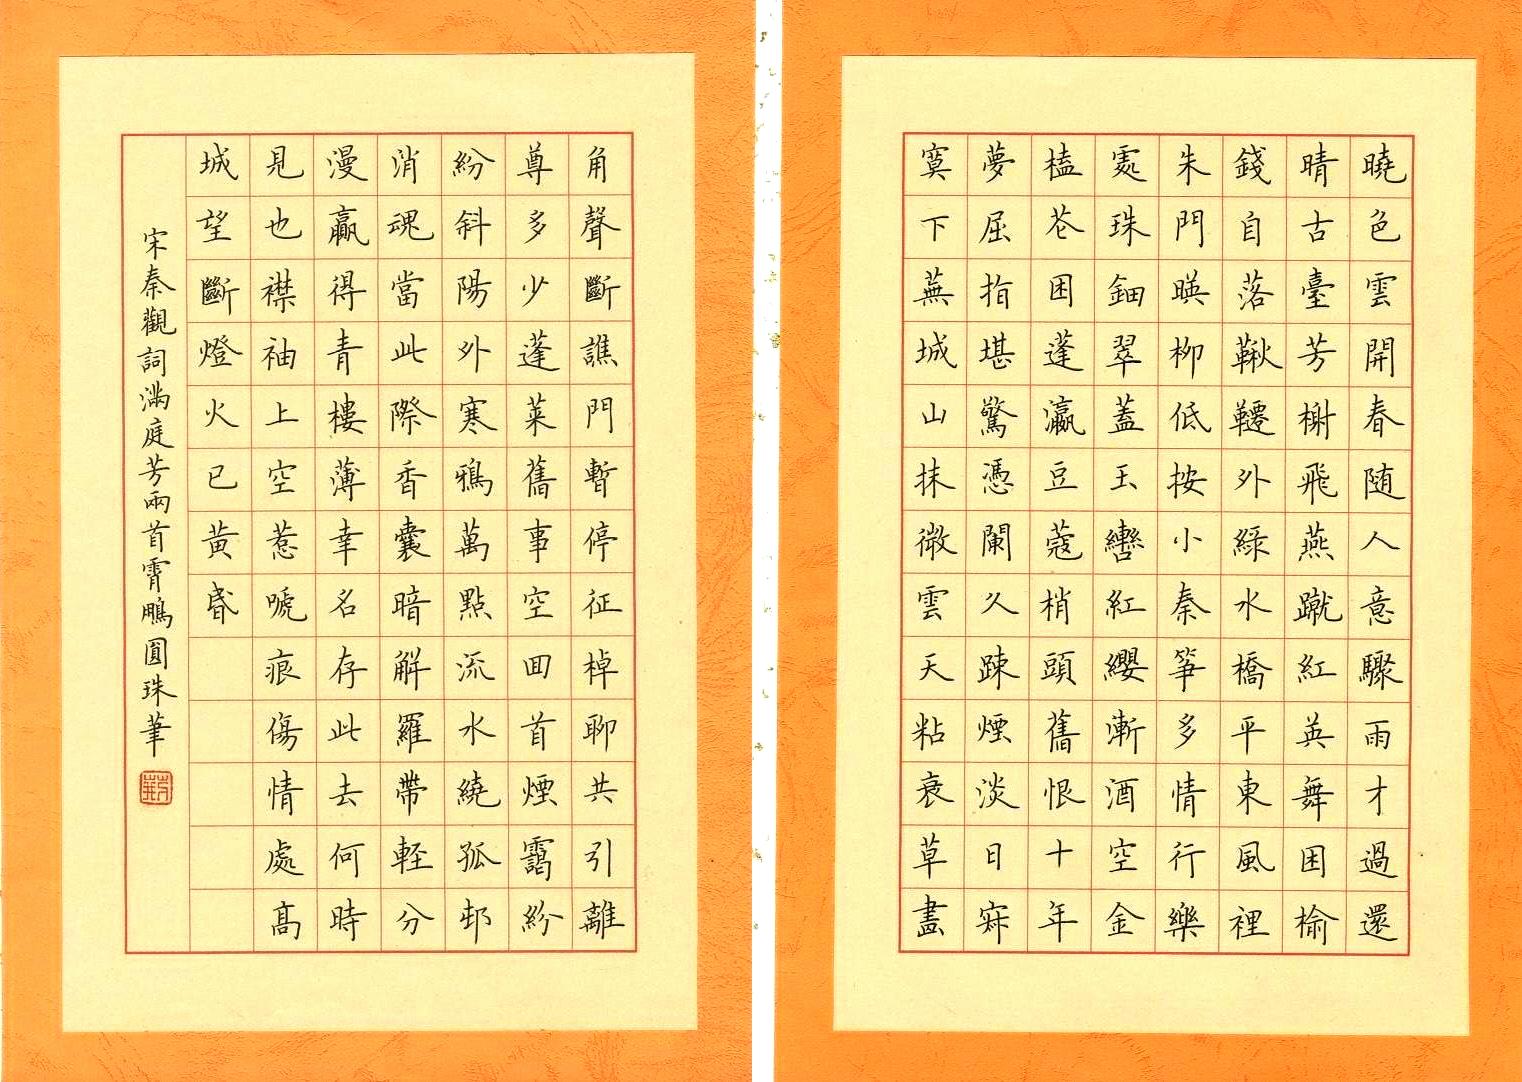 曉色雲開春随人意驟雨才過還
晴古臺芳榭飛燕蹴紅英舞困榆
錢自落鞦韆外綠水橋平東風裡
朱門暎柳低按小秦箏多情行樂
處珠鈿翠蓋玉轡紅纓漸酒空金
榼花困蓬瀛豆蔻梢頭舊恨十年
夢屈指堪驚憑闌久踈煙淡日寂
寞下蕪城山抹微雲天粘衰草畫
角聲斷譙門暫停征棹聊共引離
尊多少蓬萊舊事空囬首煙靄紛
紛斜陽外寒鴉萬點流水繞孤邨
消魂當此際香囊暗解羅帶軽分
漫贏得青樓薄幸名存此去何時
見也襟袖上空惹嗁痕傷情處高
城望斷燈火已黃昏
宋秦觀詞滿庭芳兩首霄鵬圓珠筆